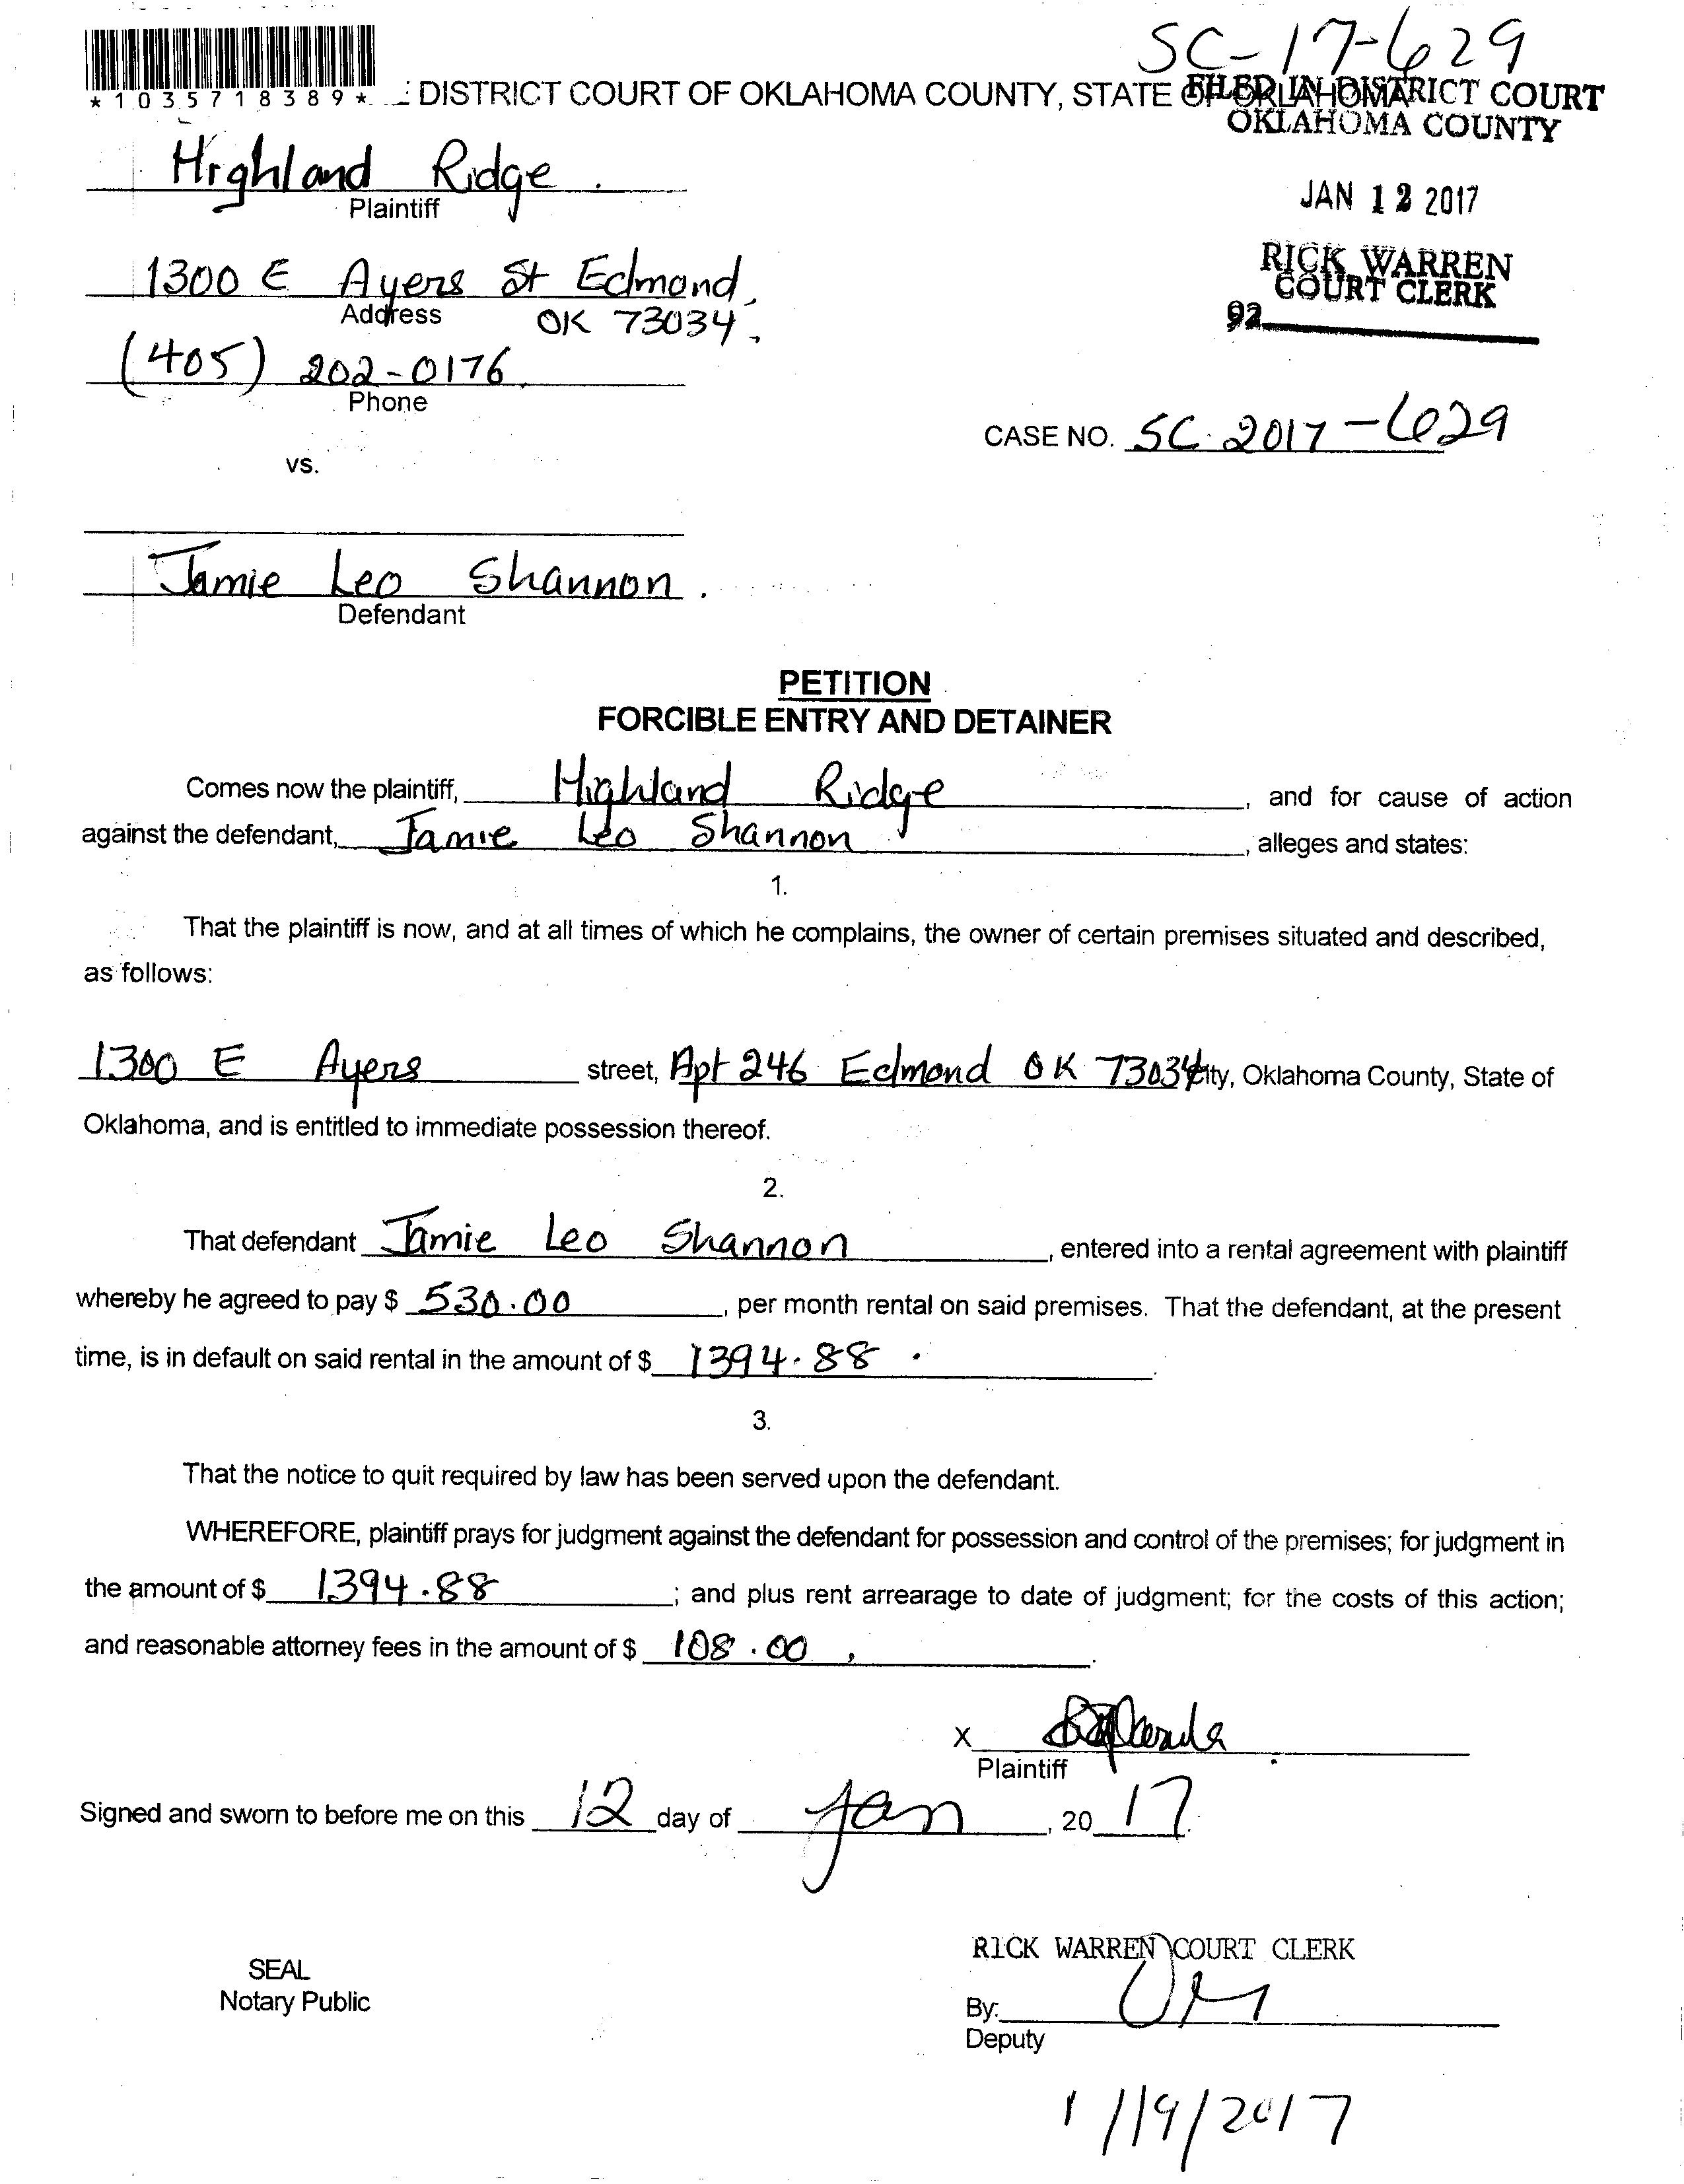 SC-17-629
*1035718389* E DISTRICT COURT OF OKLAHOMA COUNTY, STATE OF OKLAHOMA
FILED IN DISTRICT COURT
OKLAHOMA COUNTY
JAN 12 2017
RICK WARREN
COURT CLERK
92
Highland Ridge.
Plaintiff
1300 E Ayers St Edmond,
Address OK 73034.
(405) 202-0176.
Phone
CASE NO. SC-2017-629
vs.
Jamie Leo Shannon.
Defendant
PETITION
FORCIBLE ENTRY AND DETAINER
Comes now the plaintiff, Highland Ridge, and for cause of action
against the defendant, Jamie Leo Shannon, alleges and states:
1.
That the plaintiff is now, and at all times of which he complains, the owner of certain premises situated and described,
as follows:
1300 E Ayers street, Apt 246 Edmond OK 73034 City, Oklahoma County, State of
Oklahoma, and is entitled to immediate possession thereof.
2.
That defendant Jamie Leo Shannon, entered into a rental agreement with plaintiff
whereby he agreed to pay $ 530.00, per month rental on said premises. That the defendant, at the present
time, is in default on said rental in the amount of $ 1394.88.
3.
That the notice to quit required by law has been served upon the defendant.
WHEREFORE, plaintiff prays for judgment against the defendant for possession and control of the premises; for judgment in
the amount of $ 1394.88; and plus rent arrearage to date of judgment; for the costs of this action;
and reasonable attorney fees in the amount of $ 108.00.
X
Plaintiff
Signed and sworn to before me on this 12 day of Jan, 20 17.
RICK WARREN COURT CLERK
SEAL
Notary Public
By:
Deputy
1/19/2017